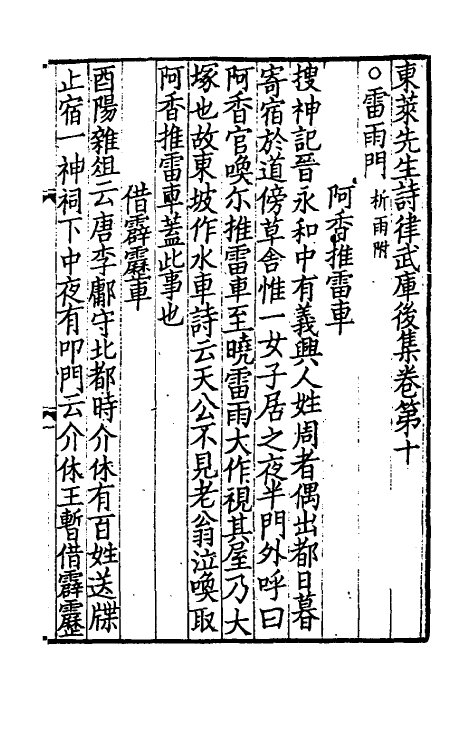 東萊先生詩律武庫後集卷第十
○雷雨門 祈雨附
阿香推雷車
搜神記晉永和中有義興人姓周者偶出都日暮
寄宿於道傍草舍惟一女子居之夜半門外呼曰
阿香官喚尓推雷車至曉雷雨大作視其屋乃大
塚也故東坡作水車詩云天公不見老翁泣喚取
阿香推雷車蓋此事也
借霹靂車
酉陽雜俎云唐李鄘守北都時介休有百姓送牒
止宿一神祠下中夜有叩門云介休王暫借霹靂